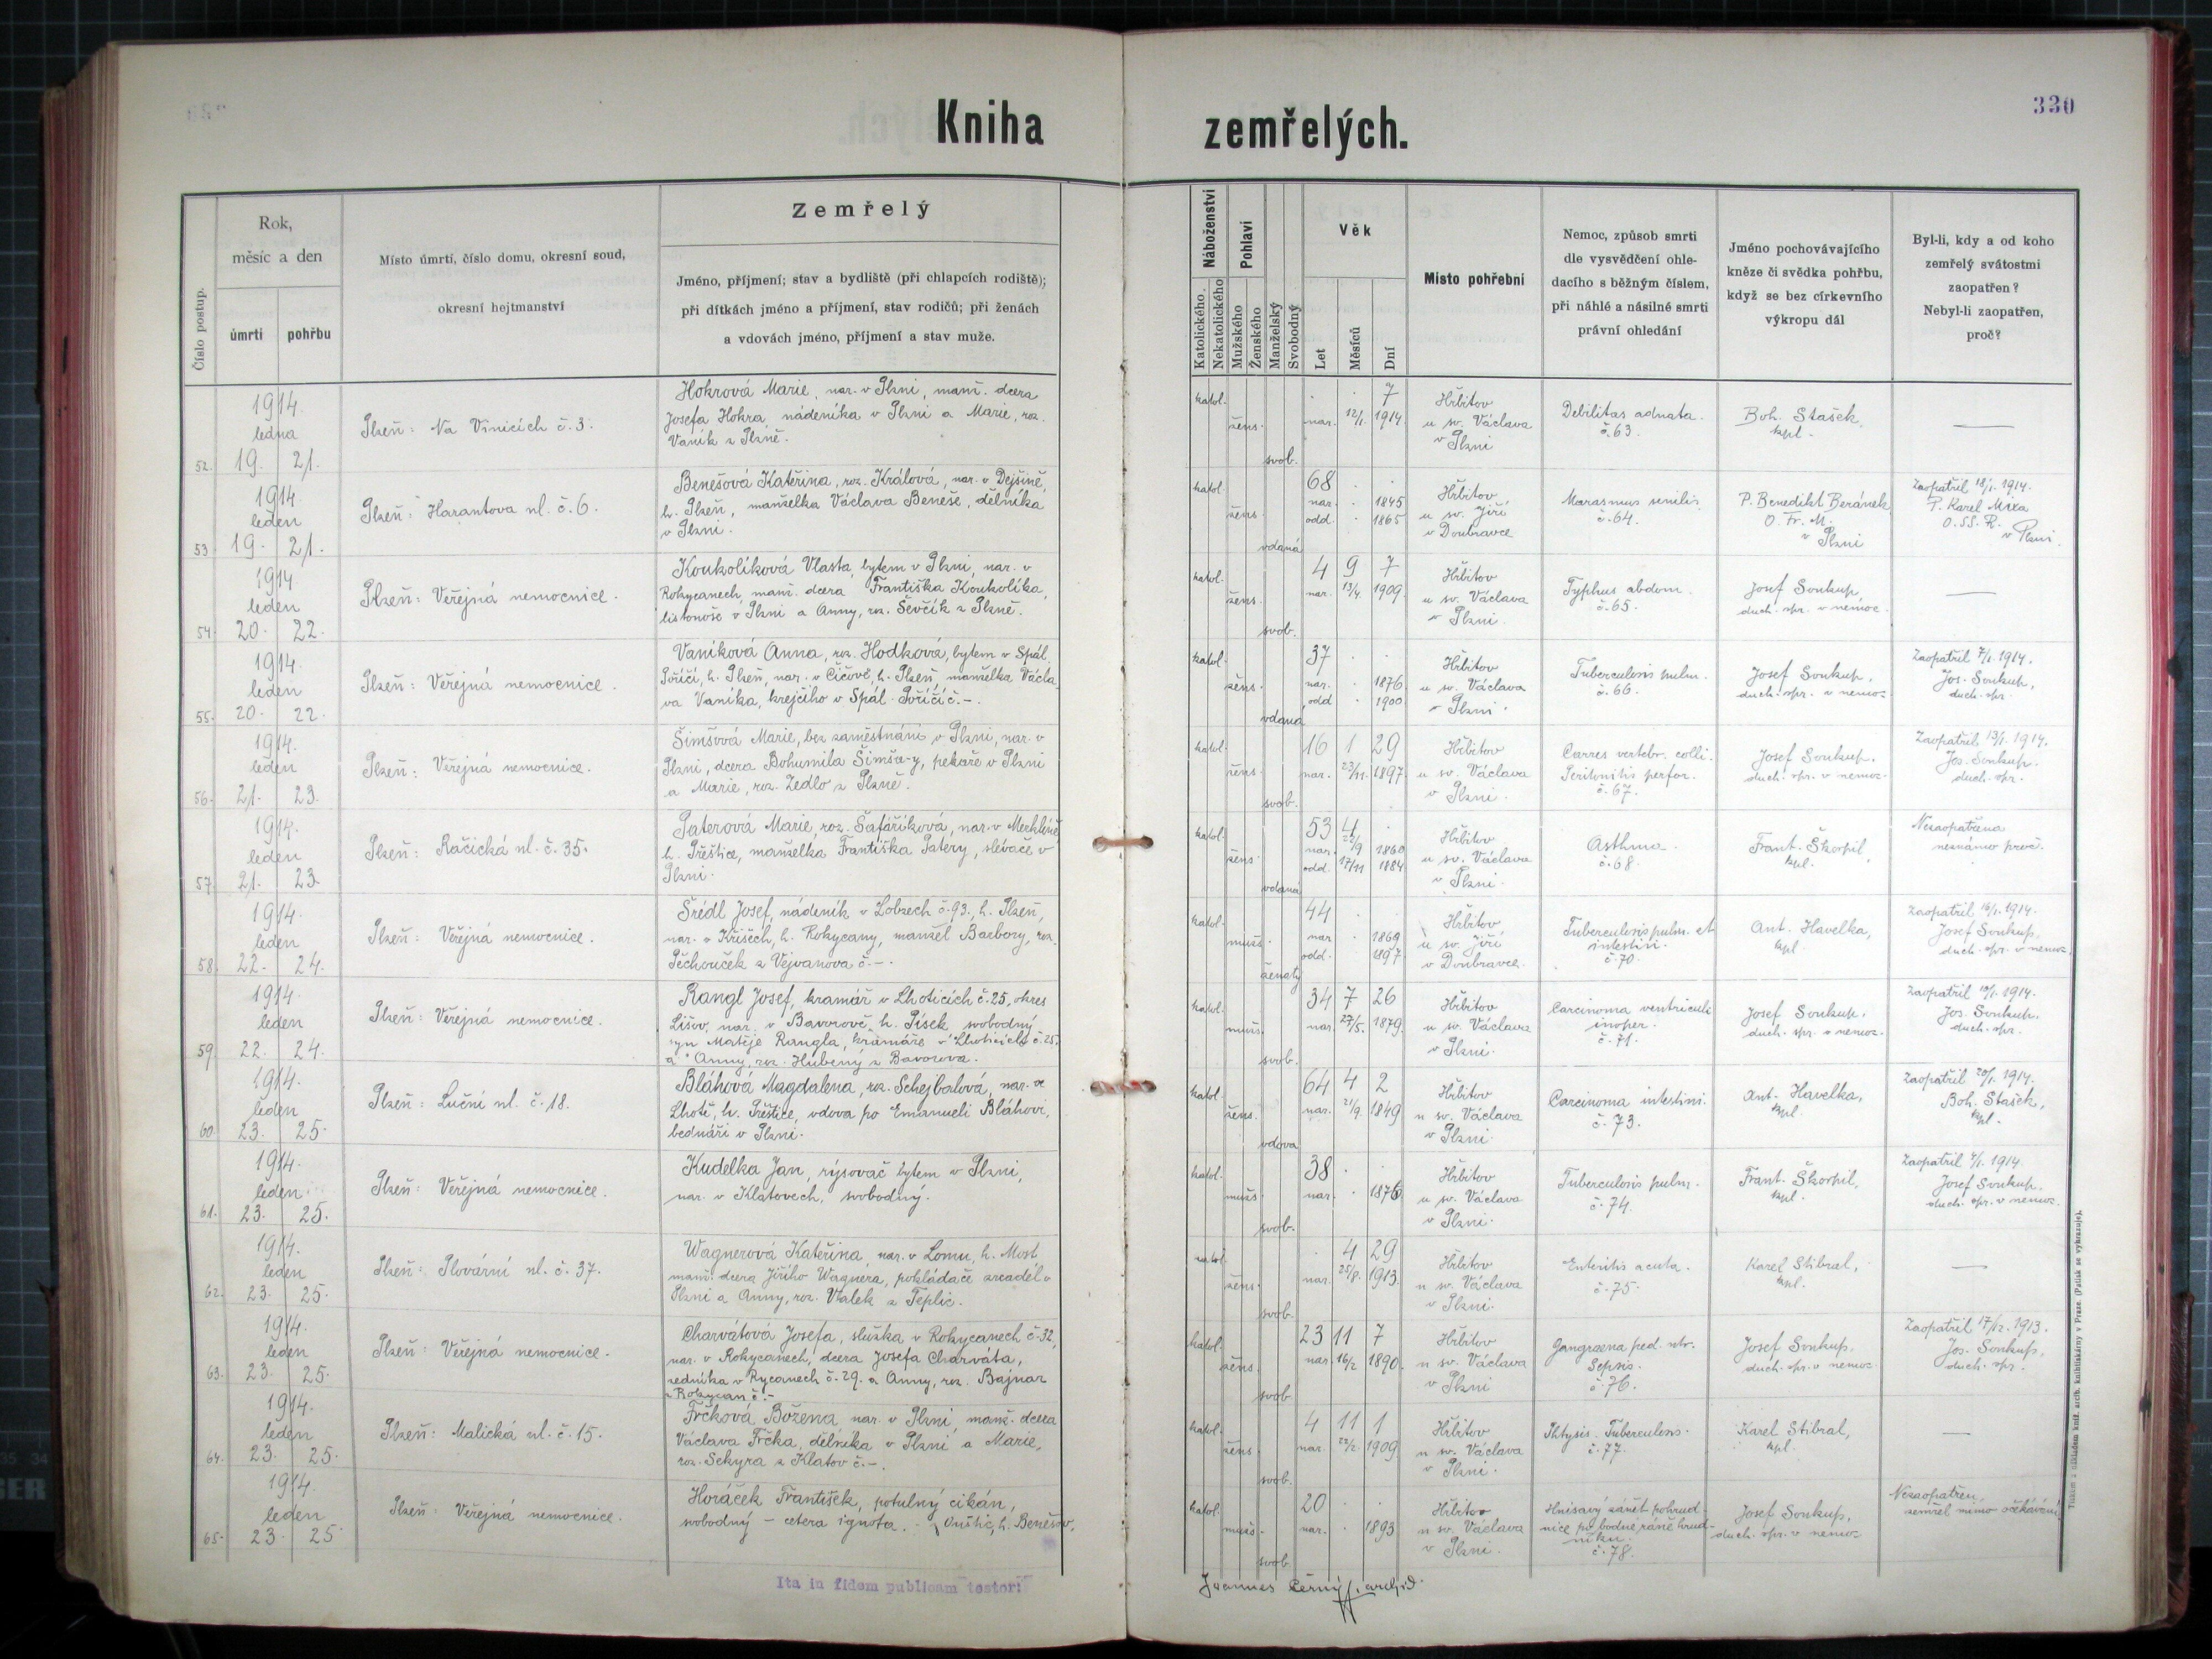 Kniha zemřelých.
330
Číslo postup.
Rok,
měsíc a den
úmrtí
pohřbu
Místo úmrtí, číslo domu, okresní soud,
okresní hejtmanství
Zemřelý
Jméno, příjmení; stav a bydliště (při chlapcích rodiště);
při dítkách jméno a příjmení, stav rodičů; při ženách
a vdovách jméno, příjmení a stav muže.
Náboženství
Katolického
Nekatolického
Pohlaví
Mužského
Ženského
Manželský
Svobodný
Věk
Let
Měsíců
Dní
Místo pohřební
Nemoc, způsob smrti
dle vysvědčení ohle-
dacího s běžným číslem,
při náhlé a násilné smrti
právní ohledání
Jméno pochovávajícího
kněze či svědka pohřbu,
když se bez církevního
výkropu dál
Byl-li, kdy a od koho
zemřelý svátostmi
zaopatřen?
Nebyl-li zaopatřen,
proč?
52.
1914.
ledna
19. 21.
Plzeň: Na Vinicích č. 3.
Hokrová Marie, nar. v Plzni, manž. dcera
Josefa Hokra, nádeníka v Plzni a Marie, roz.
Vaník z Plzně.
katol.
žens.
svob.
7
nar. 12/1. 1914.
Hřbitov
u sv. Václava
v Plzni
Debilitas adnata.
č. 63.
Boh. Stašek,
kpl.
—
53
1914.
leden
19. 21.
Plzeň: Harantova ul. č. 6.
Benešová Kateřina, roz. Králová, nar. v Dejšině,
h. Plzeň, manželka Václava Beneše, dělníka
v Plzni.
katol.
žens.
vdaná
68
nar. 1845
odd. 1865
Hřbitov
u sv. Jiří
v Doubravce
Marasmus senilis.
č. 64.
P. Benedikt Beránek
O. Fr. M.
v Plzni
Zaopatřil 18/1. 1914.
P. Karel Mixa
O. SS. R.
v Plzni.
54
1914
leden
20. 22.
Plzeň: Veřejná nemocnice.
Koukolíková Vlasta, bytem v Plzni, nar. v
Rokycanech, manž. dcera Františka Koukolíka,
listonoše v Plzni a Anny, roz. Ševčík z Plzně.
katol.
žens.
svob.
4 9 7
nar. 13/4. 1909.
Hřbitov
u sv. Václava
v Plzni.
Typhus abdom.
č. 65.
Josef Soukup,
duch. spr. v nemoc.
—
55.
1914.
leden
20. 22.
Plzeň: Veřejná nemocnice.
Vaníková Anna, roz. Hodková, bytem v Spál.
Poříčí, h. Plzeň, nar. v Čičově, h. Plzeň, manželka Václa-
va Vaníka, krejčího v Spál. Poříčí č. -.
katol.
žens.
vdaná
37
nar. 1876.
odd. 1900
Hřbitov
u sv. Václava
v Plzni.
Tuberculosis pulm.
č. 66.
Josef Soukup,
duch. spr. v nemoc.
Zaopatřil 7/1. 1914.
Jos. Soukup,
duch. spr.
56.
1914.
leden
21. 23.
Plzeň: Veřejná nemocnice.
Šimšová Marie, bez zaměstnání v Plzni, nar. v
Plzni, dcera Bohumila Šimša-y, pekaře v Plzni
a Marie, roz. Zedlo z Plzně.
katol.
žens.
svob.
16 1 29
nar. 23/11. 1897.
Hřbitov
u sv. Václava
v Plzni.
Carres vertebr. colli.
Peritonitis perfor.
č. 67.
Josef Soukup.
duch. spr. v nemoc.
Zaopatřil 13/1. 1914.
Jos. Soukup.
duch. spr.
57.
1914.
leden
21. 23.
Plzeň: Račická ul. č. 35.
Paterová Marie, roz. Šafaříková, nar. v Merklíně
h. Přeštice, manželka Františka Patery, slévače v
Plzni.
katol.
žens.
vdaná
53 4
nar. 22/9 1860
odd. 17/11 1884
Hřbitov
u sv. Václava
v Plzni.
Asthma.
č. 68.
Frant. Škorpil,
kpl.
Nezaopatřena
neznámo proč.
58.
1914.
leden
22. 24.
Plzeň: Veřejná nemocnice.
Šrédl Josef, nádeník v Lobzech č. 93., h. Plzeň,
nar. v Křišech, h. Rokycany, manžel Barbory, roz.
Pěchouček z Vejvanova č. -.
katol.
mužs.
ženatý
44
nar. 1869
odd. 1897.
Hřbitov
u sv. Jiří
v Doubravce.
Tuberculosis pulm. et
intestini.
č. 70.
Ant. Havelka,
kpl.
Zaopatřil 16/1. 1914.
Josef Soukup,
duch. spr. v nemoc.
59.
1914.
leden
22. 24.
Plzeň: Veřejná nemocnice.
Rangl Josef, kramář v Lhoticích č. 25, okres
Lišov, nar. v Bavorově, h. Písek, svobodný
syn Matěje Rangla, kramáře v Lhoticích č. 25.
a Anny, roz. Hubený z Bavorova.
katol.
mužs.
svob.
34 7 26
nar. 27/5. 1879.
Hřbitov
u sv. Václava
v Plzni.
Carcinoma ventriculi
inoper.
č. 71.
Josef Soukup.
duch. spr. v nemoc.
Zaopatřil 19/1. 1914.
Jos. Soukup.
duch. spr.
60.
1914.
leden
23. 25.
Plzeň: Luční ul. č. 18.
Bláhová Magdalena, roz. Schejbalová, nar. ve
Lhotě, h. Přeštice, vdova po Emanueli Bláhovi,
bednáři v Plzni.
katol.
žens.
vdova
64 4 2
nar. 21/9. 1849
Hřbitov
u sv. Václava
v Plzni.
Carcinoma intestini.
č. 73.
Ant. Havelka,
kpl.
Zaopatřil 20/1. 1914.
Boh. Stašek,
kpl.
61.
1914.
leden
23. 25.
Plzeň: Veřejná nemocnice.
Kudelka Jan, rýsovač bytem v Plzni,
nar. v Klatovech, svobodny.
katol.
mužs.
svob.
38
nar. 1876
Hřbitov
u sv. Václava
v Plzni.
Tuberculosis pulm.
č. 74.
Frant. Škorpil,
kpl.
Zaopatřil 1914.
Josef Soukup.
duch. spr. v nemoc.
62.
1914.
leden
23. 25.
Plzeň: Plovární ul. č. 37.
Wagnerová Kateřina, nar. v Lomu, h. Most
manž. dcera Jiřího Wagnera, pokládače zrcadel v
Plzni a Anny, roz. Válek z Teplic.
katol.
žens.
svob.
4 29
nar. 25/8. 1913.
Hřbitov
u sv. Václava
v Plzni.
Enteritis acuta.
č. 75.
Karel Stibral,
kpl.
—
63.
1914.
leden
23. 25.
Plzeň: Veřejná nemocnice.
Charvátová Josefa, služka v Rokycanech č. 32,
nar. v Rokycanech, dcera Josefa Charváta,
zedníka v Rycanech č. 29. a Anny, roz. Bajnar
z Rokycan č. -
katol.
žens.
svob.
23 11 7
nar. 16/2 1890.
Hřbitov
u sv. Václava
v Plzni
Gangraena ped. utr.
Sepsis.
č. 76.
Josef Soukup.
duch. spr. v nemoc.
Zaopatřil 17/12. 1913.
Jos. Soukup,
duch. spr.
64.
1914.
leden
23. 25.
Plzeň: Malická ul. č. 15.
Frčková Božena nar. v Plzni, manž. dcera
Václava Frčka, dělníka v Plzni a Marie,
roz. Sekyra z Klatov č. -.
katol.
žens.
svob.
4 11 1
nar. 22/2. 1909
Hřbitov
u sv. Václava
v Plzni.
Phtysis. Tuberculosis.
č. 77.
Karel Stibral,
kpl.
—
65.
1914.
leden
23. 25
Plzeň: Veřejná nemocnice.
Horáček František, potulný cikán,
svobodný - cetera ignota. h. Benešov.
katol.
mužs.
svob.
20
nar. 1893
Hřbitov
u sv. Václava
v Plzni.
Hnisavý zánět pohrud-
nice po bodné ráně hrud-
níku.
č. 78.
Josef Soukup,
duch. spr. v nemoc
Nezaopatřen,
zemřel mimo očekávání
Ita in fidem publicam testor:
Joannes Černý, archid.
Tiskem a nákladem kníž. arcib. knihtiskárny v Praze. (Padělek se vyhrazuje).